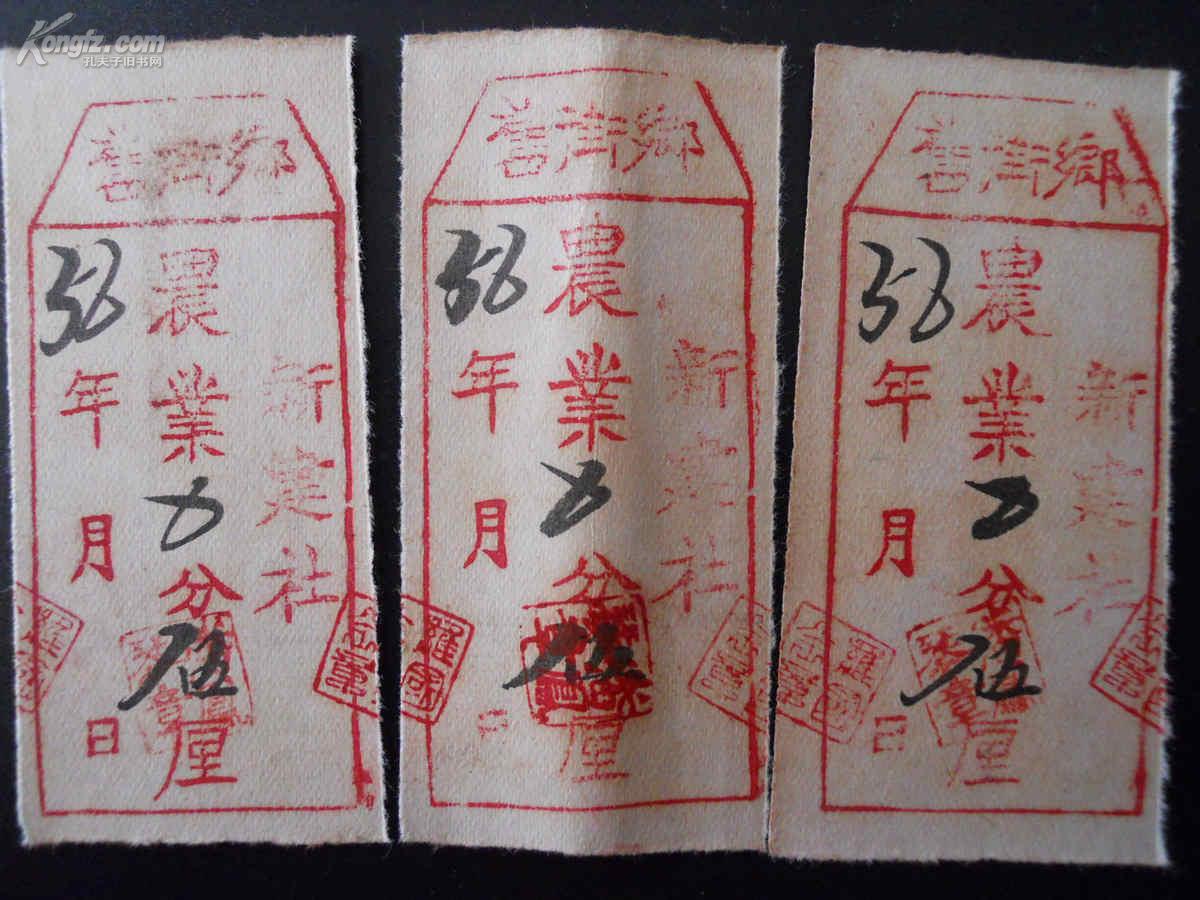 Kongfz.com
孔夫子旧书网
舊街鄉
新建社
農業 分伍厘
58年月日
舊街鄉
新建社
農業 分伍厘
58年月日
舊街鄉
新建社
農業 分伍厘
58年月日